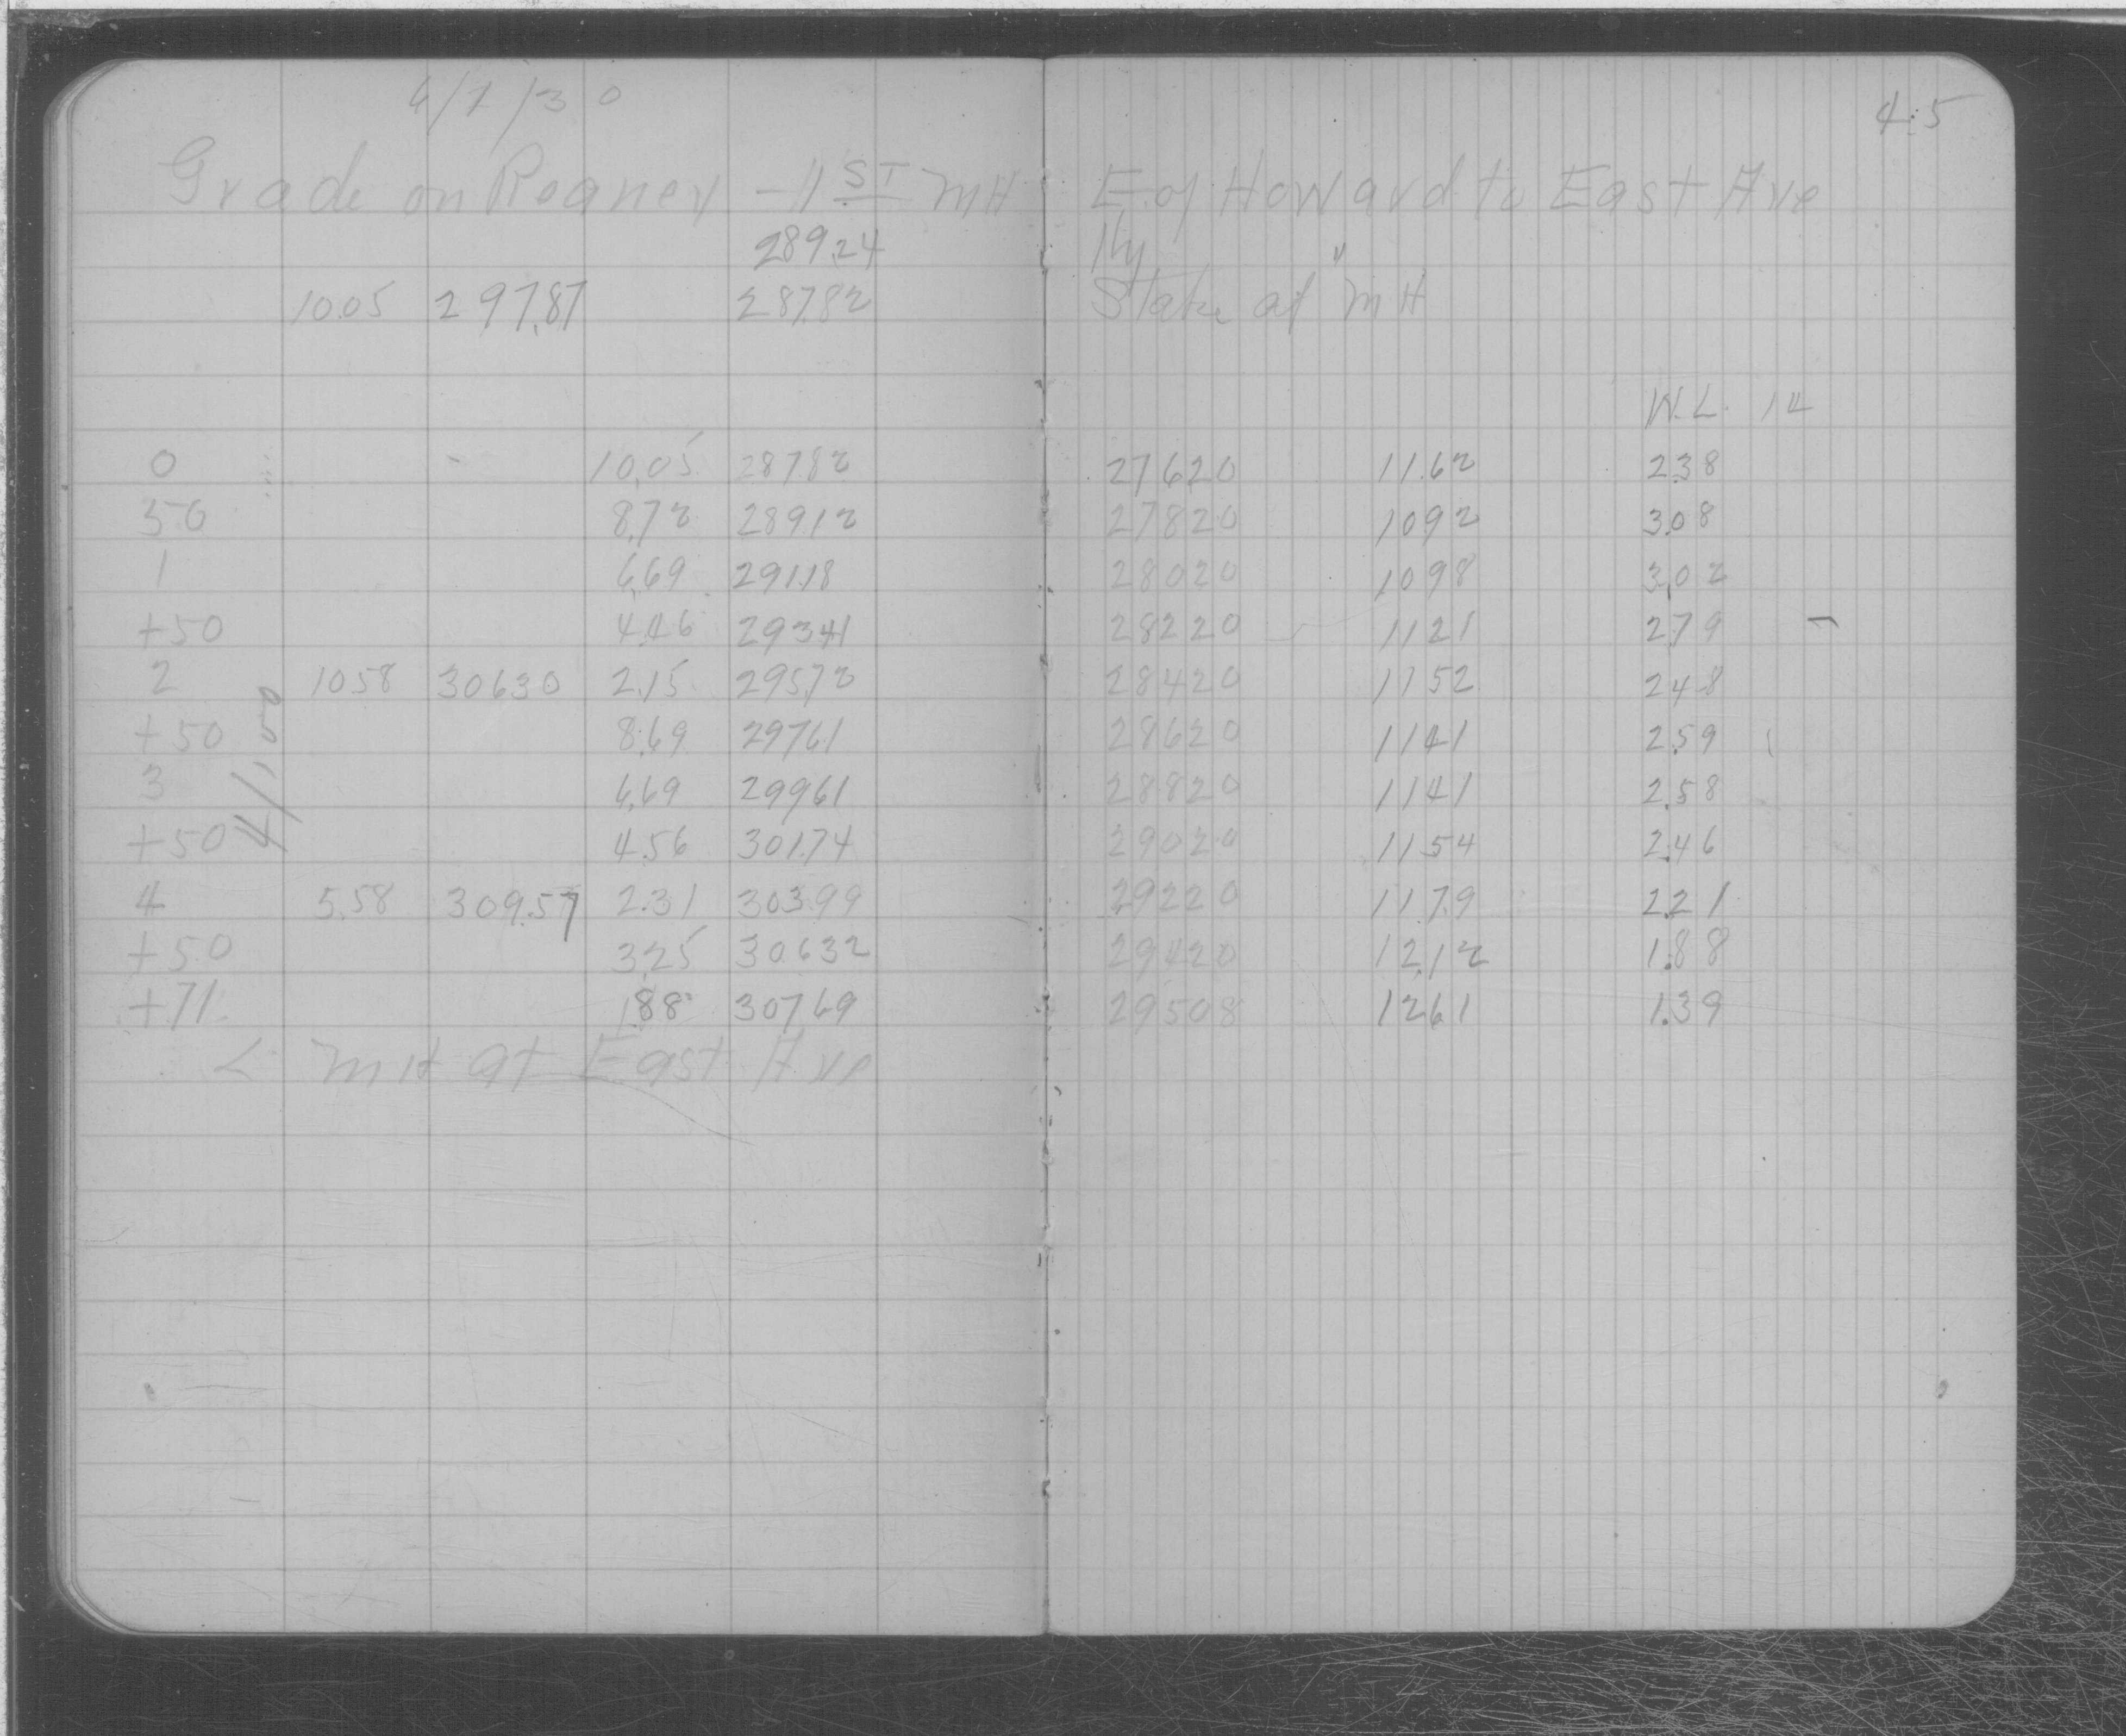 4/7/30
45
Grade on Reaney - 1ST MH E of Howard to East Ave
289.24 Hy "
10.05 297.87 287.82 Stake at MH
W.L. 14
0 10.05 287.82 276.20 11.62 2.38
50 8.72 289.12 278.20 10.92 3.08
1 6.69 291.18 280.20 10.98 3.02
+50 4.46 293.41 282.20 11.21 2.79
2 10.58 306.30 2.15 295.72 284.20 11.52 2.48
+50 8.69 297.61 286.20 11.41 2.59
3 6.69 299.61 288.20 11.41 2.58
+50 4.56 301.74 290.20 11.54 2.46
4 5.58 309.57 2.31 303.99 292.20 11.79 2.21
+50 3.25 306.32 294.20 12.12 1.88
+71 1.88 307.69 295.08 12.61 1.39
4/100
< MH at East Ave